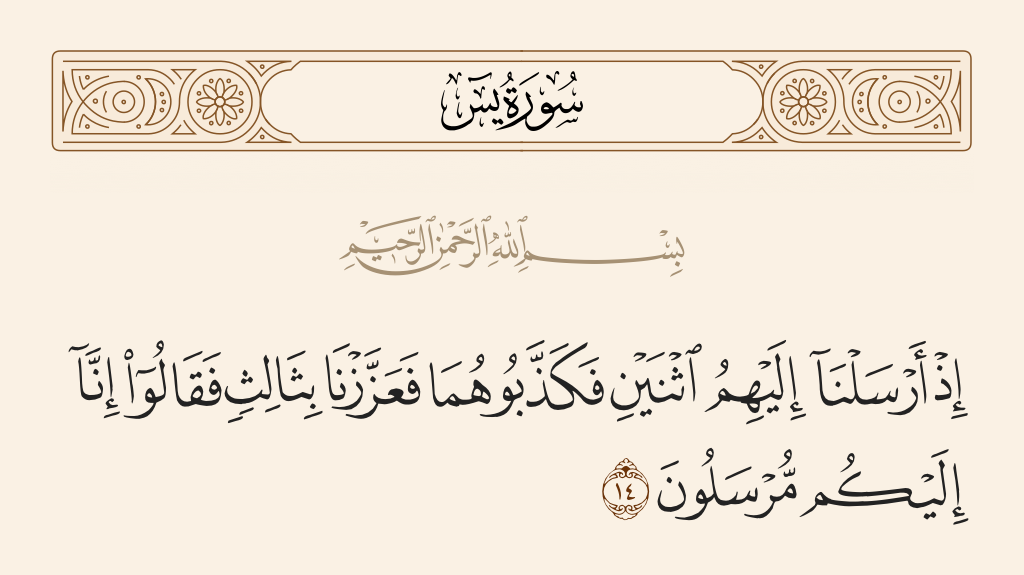 سُورَةُ يسٓ
بِسْمِ ٱللَّهِ ٱلرَّحْمَٰنِ ٱلرَّحِيمِ
إِذْ أَرْسَلْنَآ إِلَيْهِمُ ٱثْنَيْنِ فَكَذَّبُوهُمَا فَعَزَّزْنَا بِثَالِثٍ فَقَالُوٓا۟ إِنَّآ
إِلَيْكُم مُّرْسَلُونَ ١٤